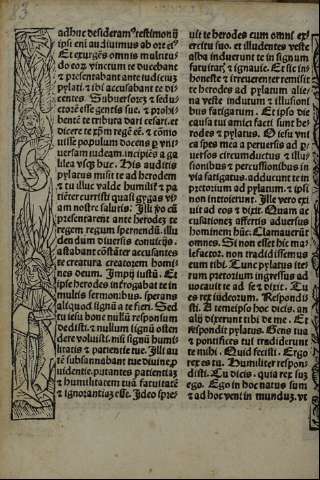 83
adhuc desideram⁹ testimoniū
ipsi eni audiuimus ab ore ei⁹
Et exurgēs omnis multitu/
do eoꝝ vinctum te ducebant
⁊ p̄sentabant ante iudiciuꝫ
pylati ⁊ ibi accusabant te di/
centes. Subuersorꝫ ⁊ sedu/
ctorē esse gentis sue. ⁊ prohi
bentē te tributa dari cesari. et
dicere te xp̄m regē eē. ⁊ cōmo
uisse populum docens ꝑ vni
uersam iudeam. incipiēs a ga
lilea vsqꝫ huc. His auditis
pylatus misit te ad herodem
⁊ tu illuc valde humilr̄ ⁊ pa
tiēter curristi quasi gygas vi
am nostre salutis. Illi ꝟo cū
presentarent ante herodeꝫ te
regem regum spernendū. illu
den dum diuersis conuicijs.
astabant cōstāter accusantes
te creatura creatorem homi
nes deum. Impij iustū. Et
ipse herodes introgabat te in
multis sermonibus. sperans
aliquod signū a te fieri. Sed
tu iesu bone nullū responsum
dedisti. ⁊ nullum signū osten
dere voluisti. nisi signū humi
litatis ⁊ patientie tue. Illi au
tē subsannabant tue diuine ꝓ
uidentie. putantes patientiaꝫ
⁊ humilitatem tuā fatuitatē
⁊ ignorantiaꝫ esse. Ideo spre/
uit te herodes cum omni ex/
ercitu suo. et illudentes veste
alba induerunt te in signum
fatuitatꝭ ⁊ ignauie. Et sic in/
honeste ⁊ irreuerenter remisit
te herodes ad pylatum alie/
na veste indutum ⁊ illusioni
bus fatigatum. Et ipso die
causa tui amici facti sunt he/
rodes ⁊ pylatus. O iesu vni
ca spes mea a peruersis ad p/
uersos circumductus ⁊ illu/
sionibus ⁊ percussionibus in
via fatigatus. adducunt te in
pretorium ad pylatum. ⁊ ipsi
non introierunt. Ille vero exi
uit ad eos ⁊ dixit. Quam ac
cusationeꝫ affertis aduersus
hominem hūc. Clamauerūt
omnes. Si non esset hic ma/
lefactor. non tradidissemus
eum tibi. Tunc pylatus ite/
rum pretorium ingressus ad
vocauit te ad se ⁊ dixit. Tu
es rex iudeorum. Respondi
sti. A temetipso hoc dicis. an
alij dixerunt tibi de me. Et
respondit pylatus. Gens tua
⁊ pontifices tui tradiderunt
te mihi. Quid fecisti. Ergo
rex es tu. Humiliter respon/
disti. Tu dicis. quia rex suꝫ
ego. Ego in hoc natus sum
⁊ ad hoc veni in munduꝫ. vt